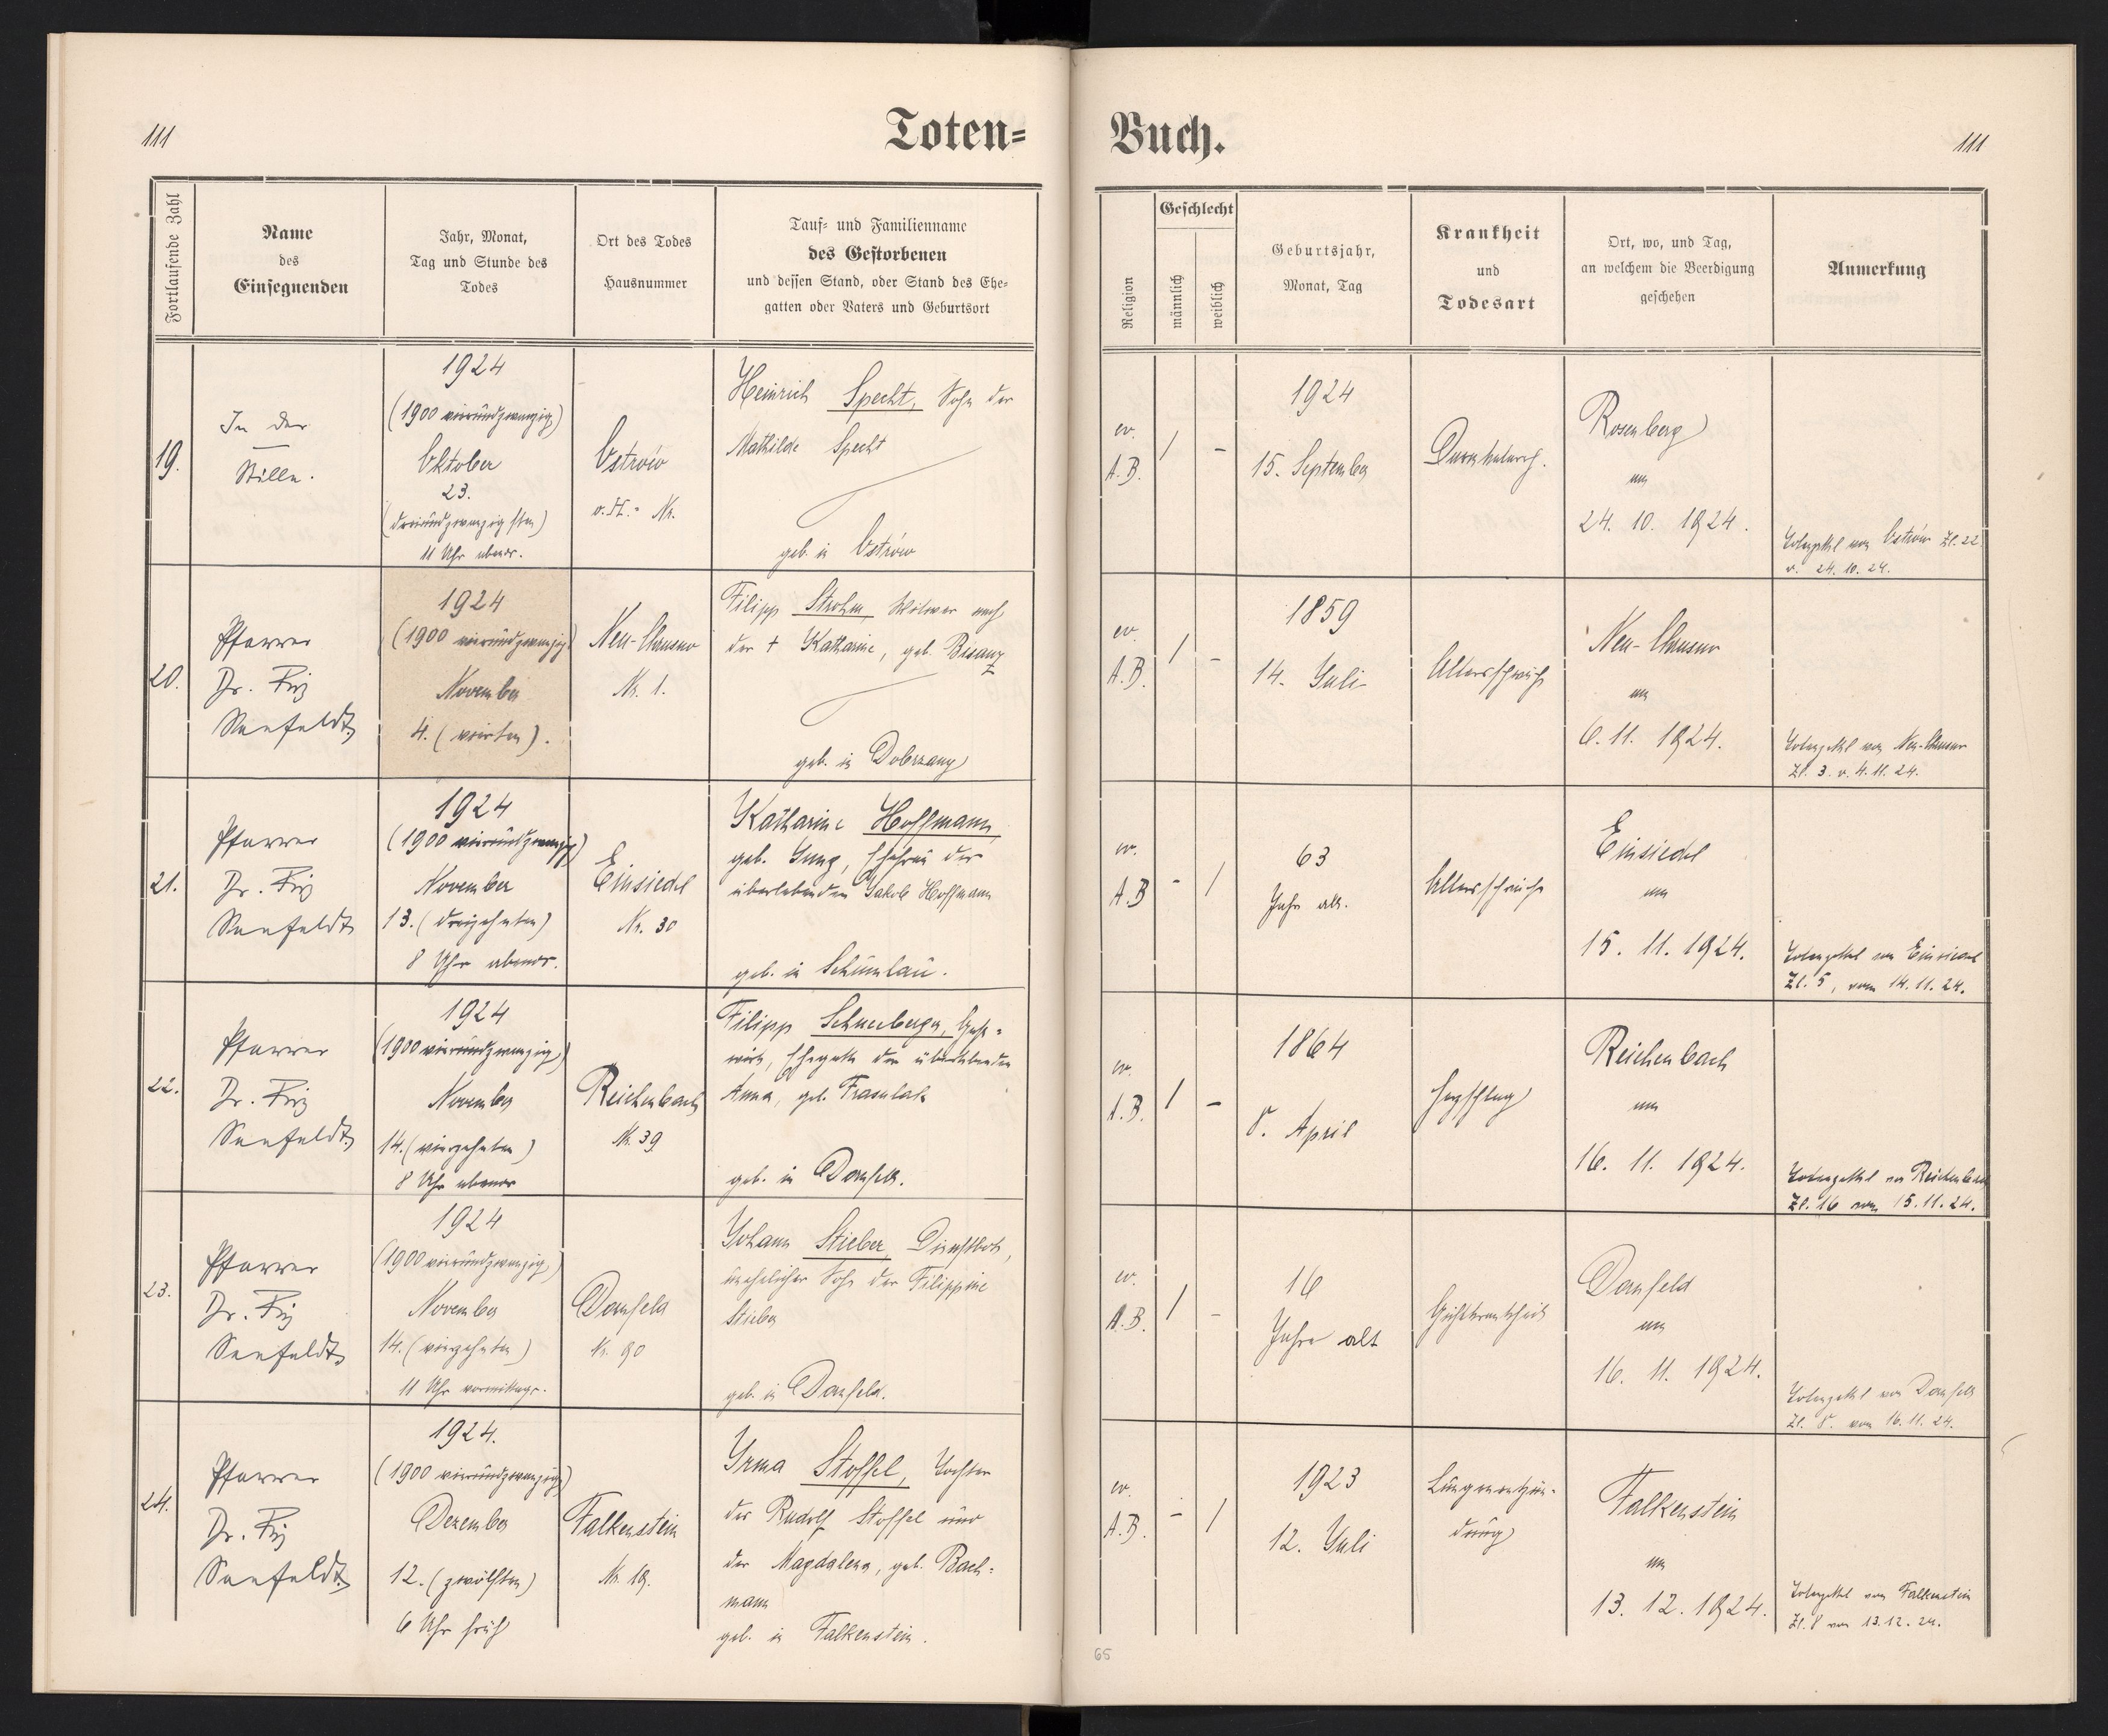 111
Toten=
Buch.
111
Fortlaufende Zahl
Name
des
Einsegnenden
Jahr, Monat,
Tag und Stunde des
Todes
Ort des Todes
Hausnummer
Tauf= und Familienname
des Gestorbenen
und dessen Stand, oder Stand des Ehe=
gatten oder Vaters und Geburtsort
Religion
Geschlecht
männlich
weiblich
Geburtsjahr,
Monat, Tag
Krankheit
und
Todesart
Ort, wo, und Tag,
an welchem die Beerdigung
geschehen
Anmerkung
19.
In der
Stille.
1924
(1900 vierundzwanzig)
Oktober
23.
(dreiundzwanzigsten)
11 Uhr abends.
Ostrów
Nr.
Heinrich Specht, Sohn der
Mathilde Specht
geb. in Ostrów
ev.
A.B.
/
-
1924
15. September
Rosenberg
am
24. 10. 1924.
Totenzettel von Ostrów Zl. 22
v. 24. 10. 24.
20.
Pfarrer
Dr. Friz
Seefeldt
1924
(1900 vierundzwanzig)
November
4. (vierten).
Neu-Chrusno
Nr. 1.
Filipp Strohm, Witwer nach
der + Katharine, geb. Bisanz
geb. in Dobrzany
ev.
A.B.
/
-
1859
14. Juli
Altersschwäche
Neu-Chrusno
am
6. 11. 1924.
Totenzettel von Neu-Chrusno
Zl. 3. v. 4. 11. 24.
21.
Pfarrer
Dr. Friz
Seefeldt
1924
(1900 vierundzwanzig)
November
13. (dreizehnten)
8 Uhr abends.
Einsiedel
Nr. 30
Katharine Hoffmann,
geb. Jung, Ehefrau des
überlebenden Jakob Hoffmann
geb. in Schumlau.
ev.
A.B
-
/
63
Jahre alt.
Altersschwäche
Einsiedel
am
15. 11. 1924.
Totenzettel von Einsiedel
Zl. 5, vom 14. 11. 24.
22.
Pfarrer
Dr. Friz
Seefeldt
1924
(1900 vierundzwanzig)
November
14. (vierzehnten)
8 Uhr abends
Reichenbach
Nr. 39
Filipp Schneeberger, Gast=
wirt, Ehegatte der überlebenden
Anna, geb.
geb. in Dornfeld.
ev.
A.B.
/
-
1864
8. April
Herzschlag
Reichenbach
am
16. 11. 1924.
Totenzettel von Reichenbach
Zl. 16 vom 15. 11. 24.
23.
Pfarrer
Dr. Friz
Seefeldt
1924
(1900 vierundzwanzig)
November
14. (vierzehnten)
11 Uhr vormittags.
Dornfeld
Nr. 90
Johann Stieber, Dienstbote,
unehelicher Sohn der Filippine
Stieber
geb. in Dornfeld.
ev.
A.B.
/
-
16
Jahre alt
Dornfeld
am
16. 11. 1924.
Totenzettel von Dornfeld
Zl. 8. vom 16. 11. 24.
24.
Pfarrer
Dr. Friz
Seefeldt
1924.
(1900 vierundzwanzig)
Dezember
12. (zwölften)
6 Uhr früh
Falkenstein
Nr. 19.
Irma Stoffel, Tochter
des Rudolf Stoffel und
der Magdalena, geb. Bach=
mann
geb. in Falkenstein.
ev.
A.B.
-
/
1923
12. Juli
Lungenentzün-
dung
Falkenstein
am
13. 12. 1924.
Totenzettel von Falkenstein
Zl. 8 vom 13. 12. 24.
65